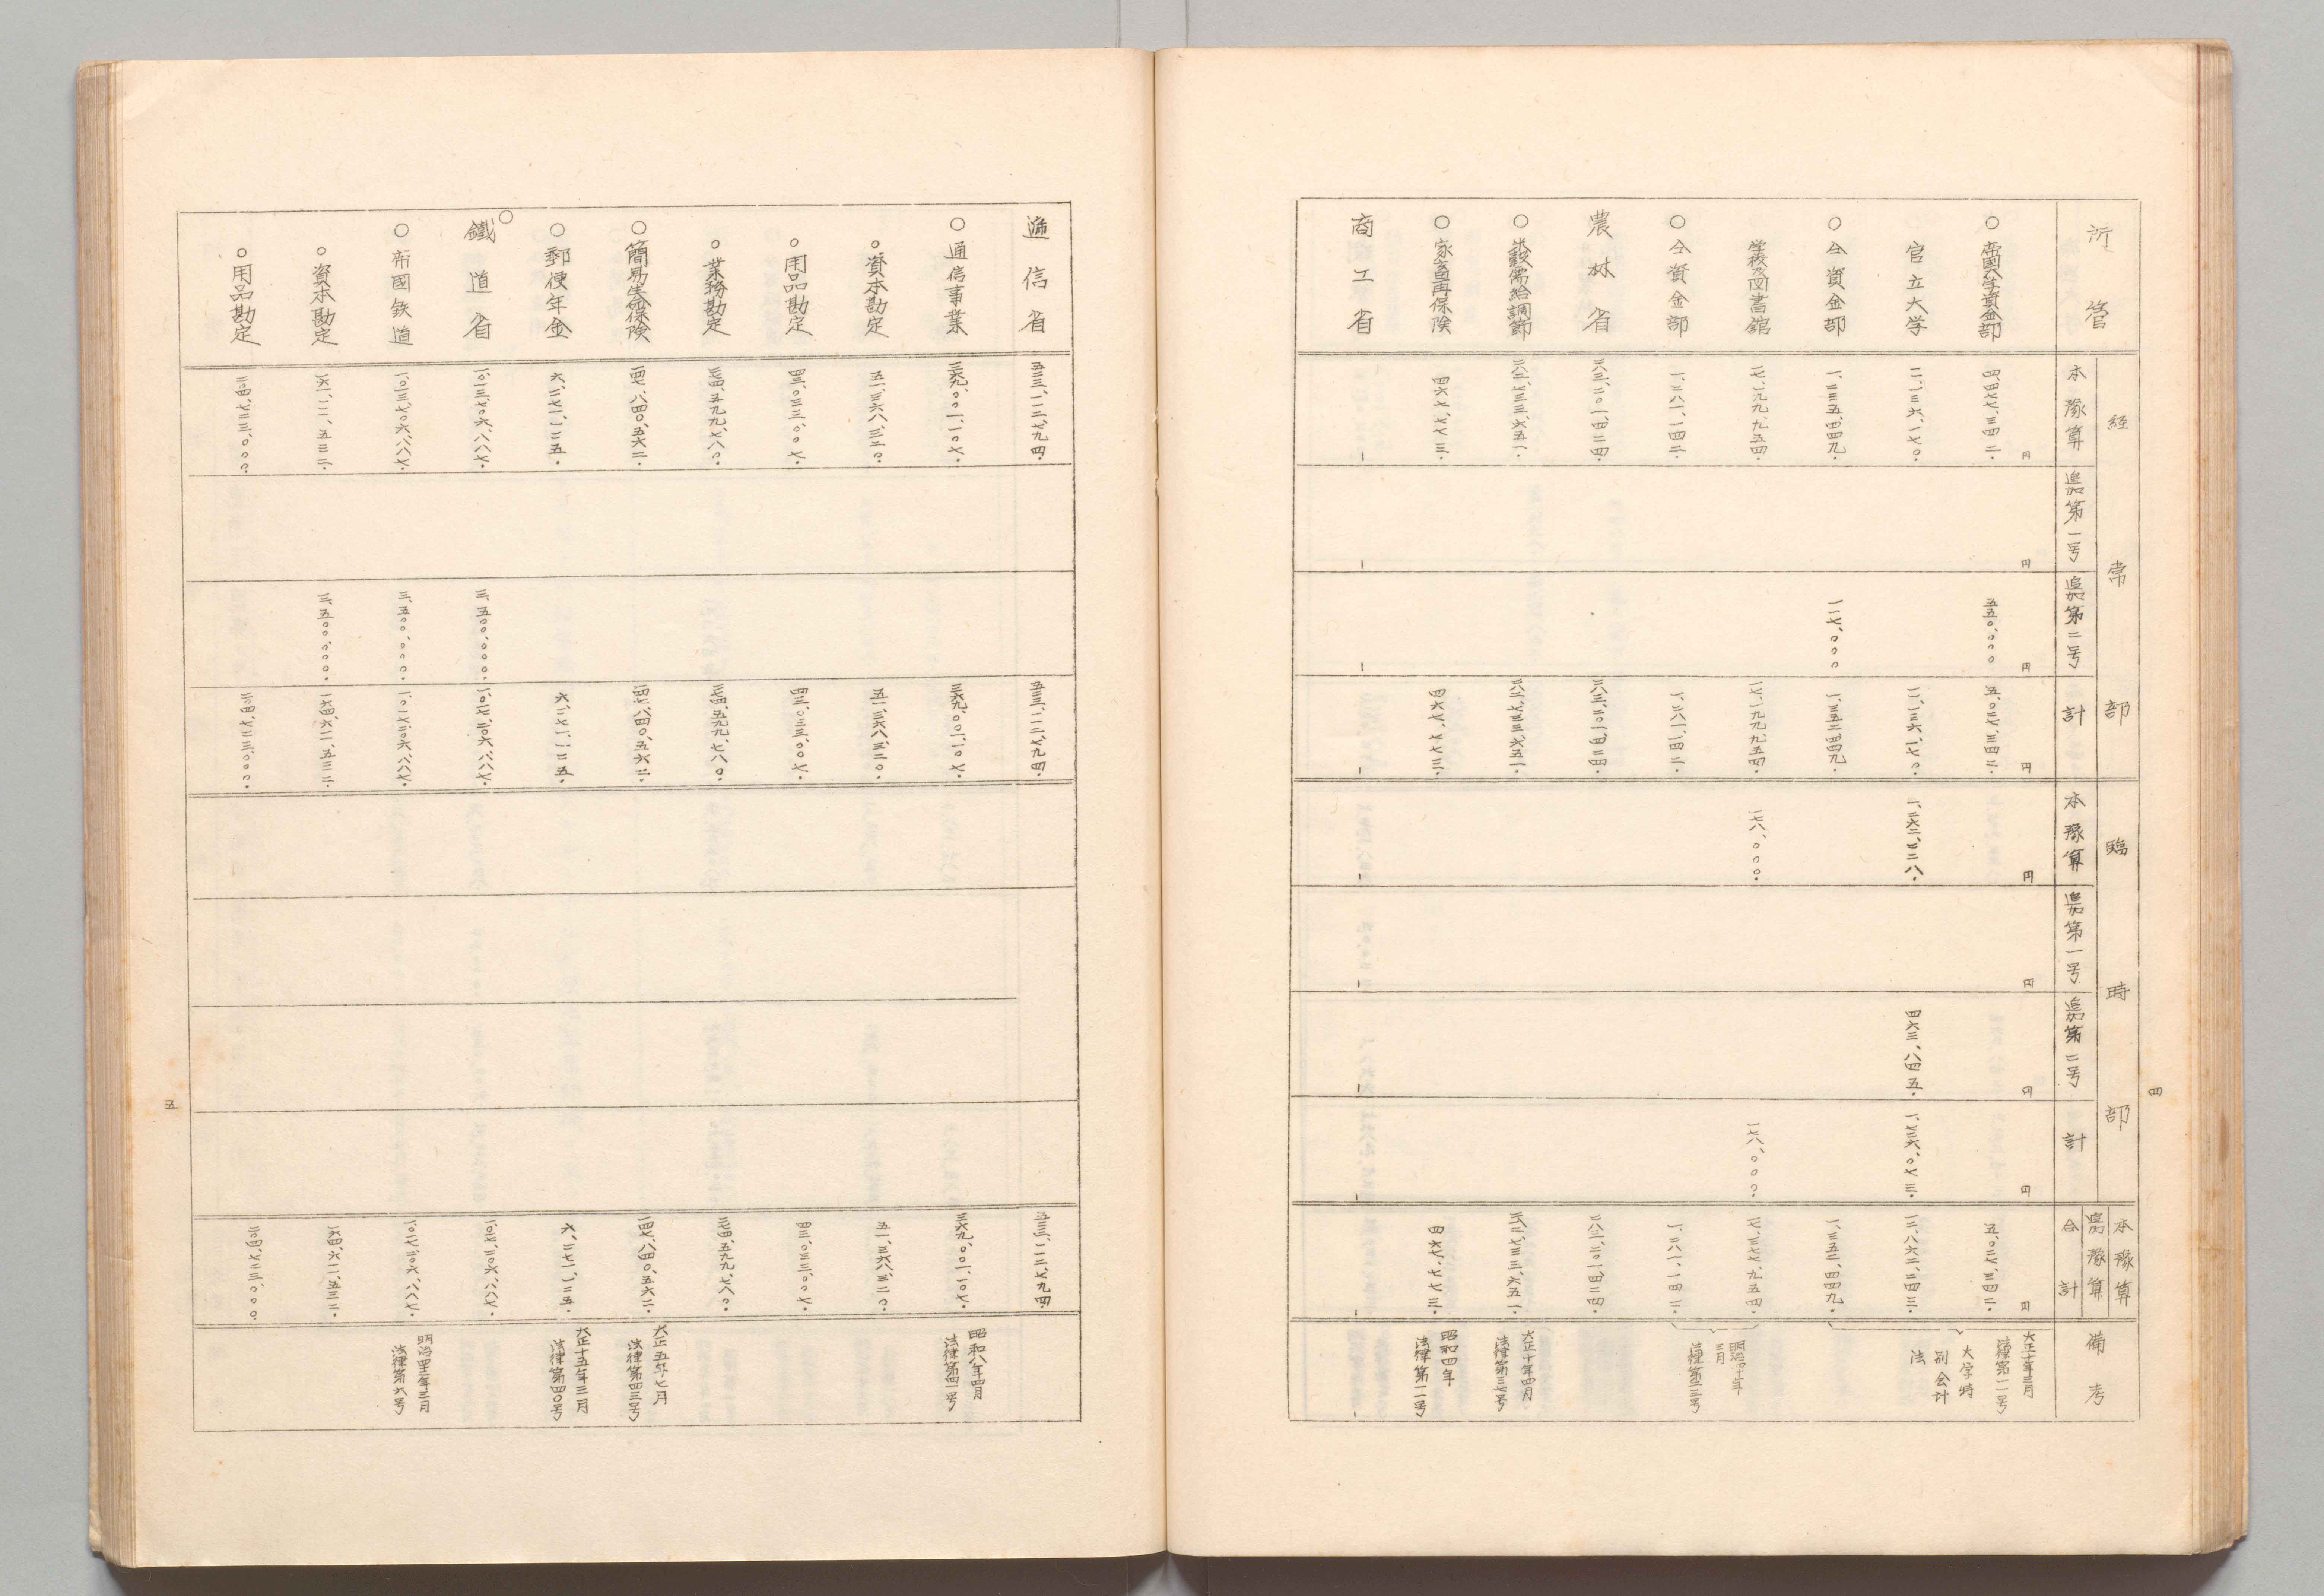 所管
経常部
本豫算
追加第一号
追加第二号
計
臨時部
本豫算
追加第一号
追加第二号
計
本豫算
追加豫算
合計
備考
円 円 円 円 円 円 円 円 円
○帝國大学資金部 四、四七七、三四二. 五五〇、〇〇〇 五、〇二七、三四二. 五、〇二七、三四二.
大正十年三月
法律第一一号
大学特
別会計
法
官立大学 一一、一三六、一七〇. 一一、一三六、一七〇. 一、二六二、二二八. 四六三、八四五. 一、七二六、〇七三. 一二、八六二、二四三.
○仝資金部 一、二三五、四四九. 一一七、〇〇〇 一、三五二、四四九. 一、三五二、四四九.
学校及図書館 一七、一九九、九五四. 一七、一九九、九五四. 一七八、〇〇〇. 一七八、〇〇〇. 一七、三七七、九五四.
明治四十年
三月
法律第二三号
○仝資金部 一、二八一、一四二. 一、二八一、一四二. 一、二八一、一四二.
農林省 二八三、二〇一、四二四. 二八三、二〇一、四二四. 二八三、二〇一、四二四.
○米穀需給調節 二八二、七三三、六五一. 二八二、七三三、六五一. 二八二、七三三、六五一.
大正十年四月
法律第三七号
○家畜再保険 四六七、七七三. 四六七、七七三. 四六七、七七三.
昭和四年
法律第一一号
商工省 – – – – – – – – – –
四
逓信省 五二三、一一二、七九四. 五二三、一一二、七九四. 五二三、一一二、七九四.
○通信事業 三六九、〇〇一、一〇七. 三六九、〇〇一、一〇七. 三六九、〇〇一、一〇七.
昭和八年四月
法律第四一号
○資本勘定 五一、三六八、三二〇. 五一、三六八、三二〇. 五一、三六八、三二〇.
○用品勘定 四三、〇三三、〇〇七. 四三、〇三三、〇〇七. 四三、〇三三、〇〇七.
○業務勘定 二七四、五九九、七八〇. 二七四、五九九、七八〇. 二七四、五九九、七八〇.
○簡易生命保険 一四七、八四〇、五六二. 一四七、八四〇、五六二. 一四七、八四〇、五六二.
大正五年七月
法律第四三号
○郵便年金 六、二七一、一二五. 六、二七一、一二五. 六、二七一、一二五.
大正十五年三月
法律第四〇号
○鐵道省 一、〇一三、七〇六、八八七. 三、五〇〇、〇〇〇. 一、〇一七、二〇六、八八七. 一、〇一七、二〇六、八八七.
○帝國鉄道 一、〇一三、七〇六、八八七. 三、五〇〇、〇〇〇. 一、〇一七、二〇六、八八七. 一、〇一七、二〇六、八八七.
明治四二年三月
法律第六号
○資本勘定 一六一、一一二、五三二. 三、五〇〇、〇〇〇. 一六四、六一二、五三二. 一六四、六一二、五三二.
○用品勘定 二〇四、七二三、〇〇〇. 二〇四、七二三、〇〇〇. 二〇四、七二三、〇〇〇.
五